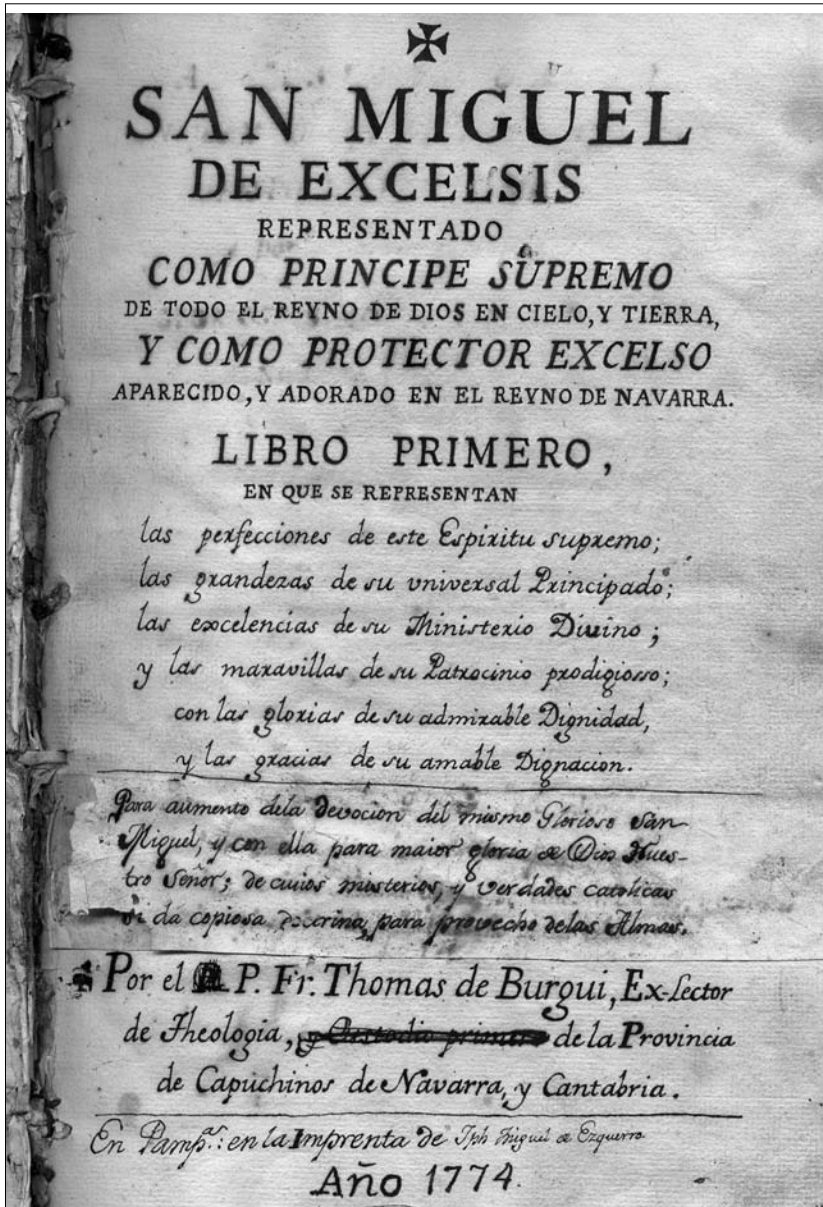 SAN MIGUEL
DE EXCELSIS
REPRESENTADO
COMO PRINCIPE SUPREMO
DE TODO EL REYNO DE DIOS EN CIELO, Y TIERRA,
Y COMO PROTECTOR EXCELSO
APARECIDO, Y ADORADO EN EL REYNO DE NAVARRA.
LIBRO PRIMERO,
EN QUE SE REPRESENTAN
las perfecciones de este Espiritu supremo;
las grandezas de su universal Principado;
las excelencias de su Ministerio Diuino;
y las maravillas de su Patrocinio prodigiosso;
con las glorias de su admirable Dignidad,
y las gracias de su amable Dignacion.
Para aumento dela devocion del mismo Glorioso San
Miguel, y con ella para maior gloria de Dios Nues-
tro Señor; de cuios misterios, y verdades catolicas
se da copiosa doctrina, para provecho delas Almas.
Por el P. Fr. Thomas de Burgui, Ex-Lector
de Theologia, y Custodio primero de la Provincia
de Capuchinos de Navarra, y Cantabria.
En Pamp.ª: en la Imprenta de Jph Miguel de Ezquerro
Año 1774.